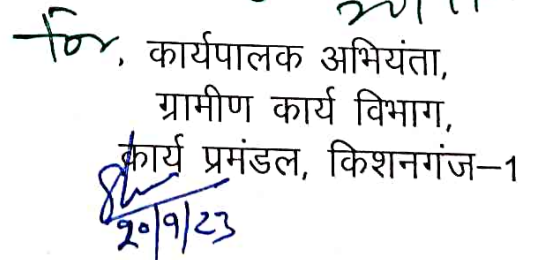 For, कार्यपालक अभियंता,
ग्रामीण कार्य विभाग,
कार्य प्रमंडल, किशनगंज–1
20/9/23